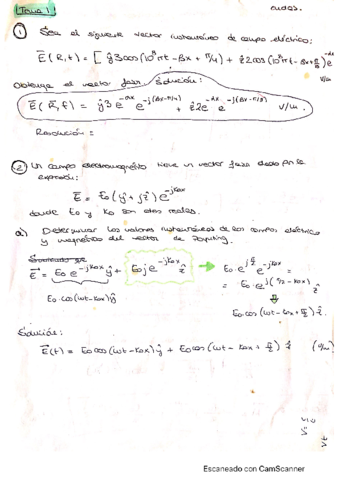 Tema 1
① Sea el siguiente vector instantáneo de campo eléctrico:
E(R,t) = [ŷ3cos(10⁸πt - βx + π/4) + ẑ2cos(10⁸πt - βx + π/8)]e^-αx
V/m
Obtenga el vector fasor. Solución:
E(R,f) = ŷ3 e^-αx e^-j(βx-π/4) + ẑ2e^-αx e^-j(βx-π/8) V/m
Resolución =
② Un campo electromagnético tiene un vector fasor dado por la
expresión:
E = E₀(ŷ + jẑ)e^-jk₀x
donde E₀ y k₀ son dos reales.
a) Determinar los valores instantáneos de los campos eléctrico
y magnético del vector de Poynting.
E = E₀e^-jk₀x ŷ + E₀je^-jk₀x ẑ → E₀·e^jπ/2 e^-jk₀x =
= E₀·e^j(π/2-k₀x) ẑ
E₀·cos(ωt-k₀x)ŷ
E₀cos(ωt-k₀x+π/2)ẑ
Solución:
E(t) = E₀cos(ωt-k₀x)ŷ + E₀cos(ωt-k₀x+π/2) ẑ (V/m)
Escaneado con CamScanner